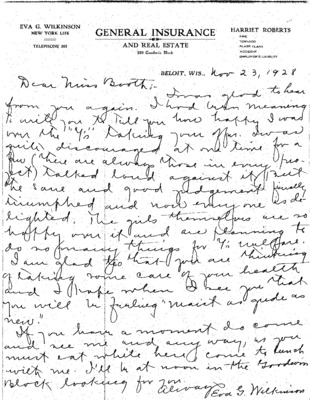 EVA G. WILKINSON
NEW YORK LIFE
TELEPHONE
GENERAL INSURANCE
AND REAL ESTATE
Goodwin Block
HARRIET ROBERTS
FIRE
TORNADO
PLATE GLASS
ACCIDENT
EMPLOYER'S LIABILITY
BELOIT, WIS., Nov 23, 1928
Dear Miss Booth:-
I was glad to hear
from you again. I had been meaning
to write you to tell you how happy I was
over the "Y's" taking your offer. I was
quite discouraged at one time for a
few (there are always those in every
) talked loud against it but
the sane and good judgement finally
triumphed and now everyone is de-
lighted. The girls themselves are so
happy over it and are planning to
do so many things for Y's welfare.
I am glad too that you are thinking
of taking some care of your health
and I hope when I see you that
you will be feeling "maist as gude as
new."
If you have a moment do come
and see me and any way, as you
must eat while here come to lunch
with me. I'll be at noon in the Goodwin
Block looking for you.
Always
Eva G. Wilkinson